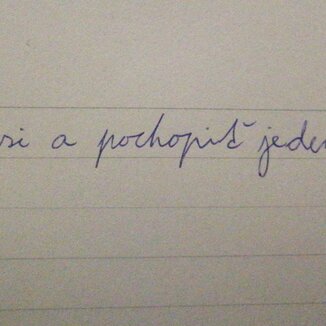 si a pochopiť jeden